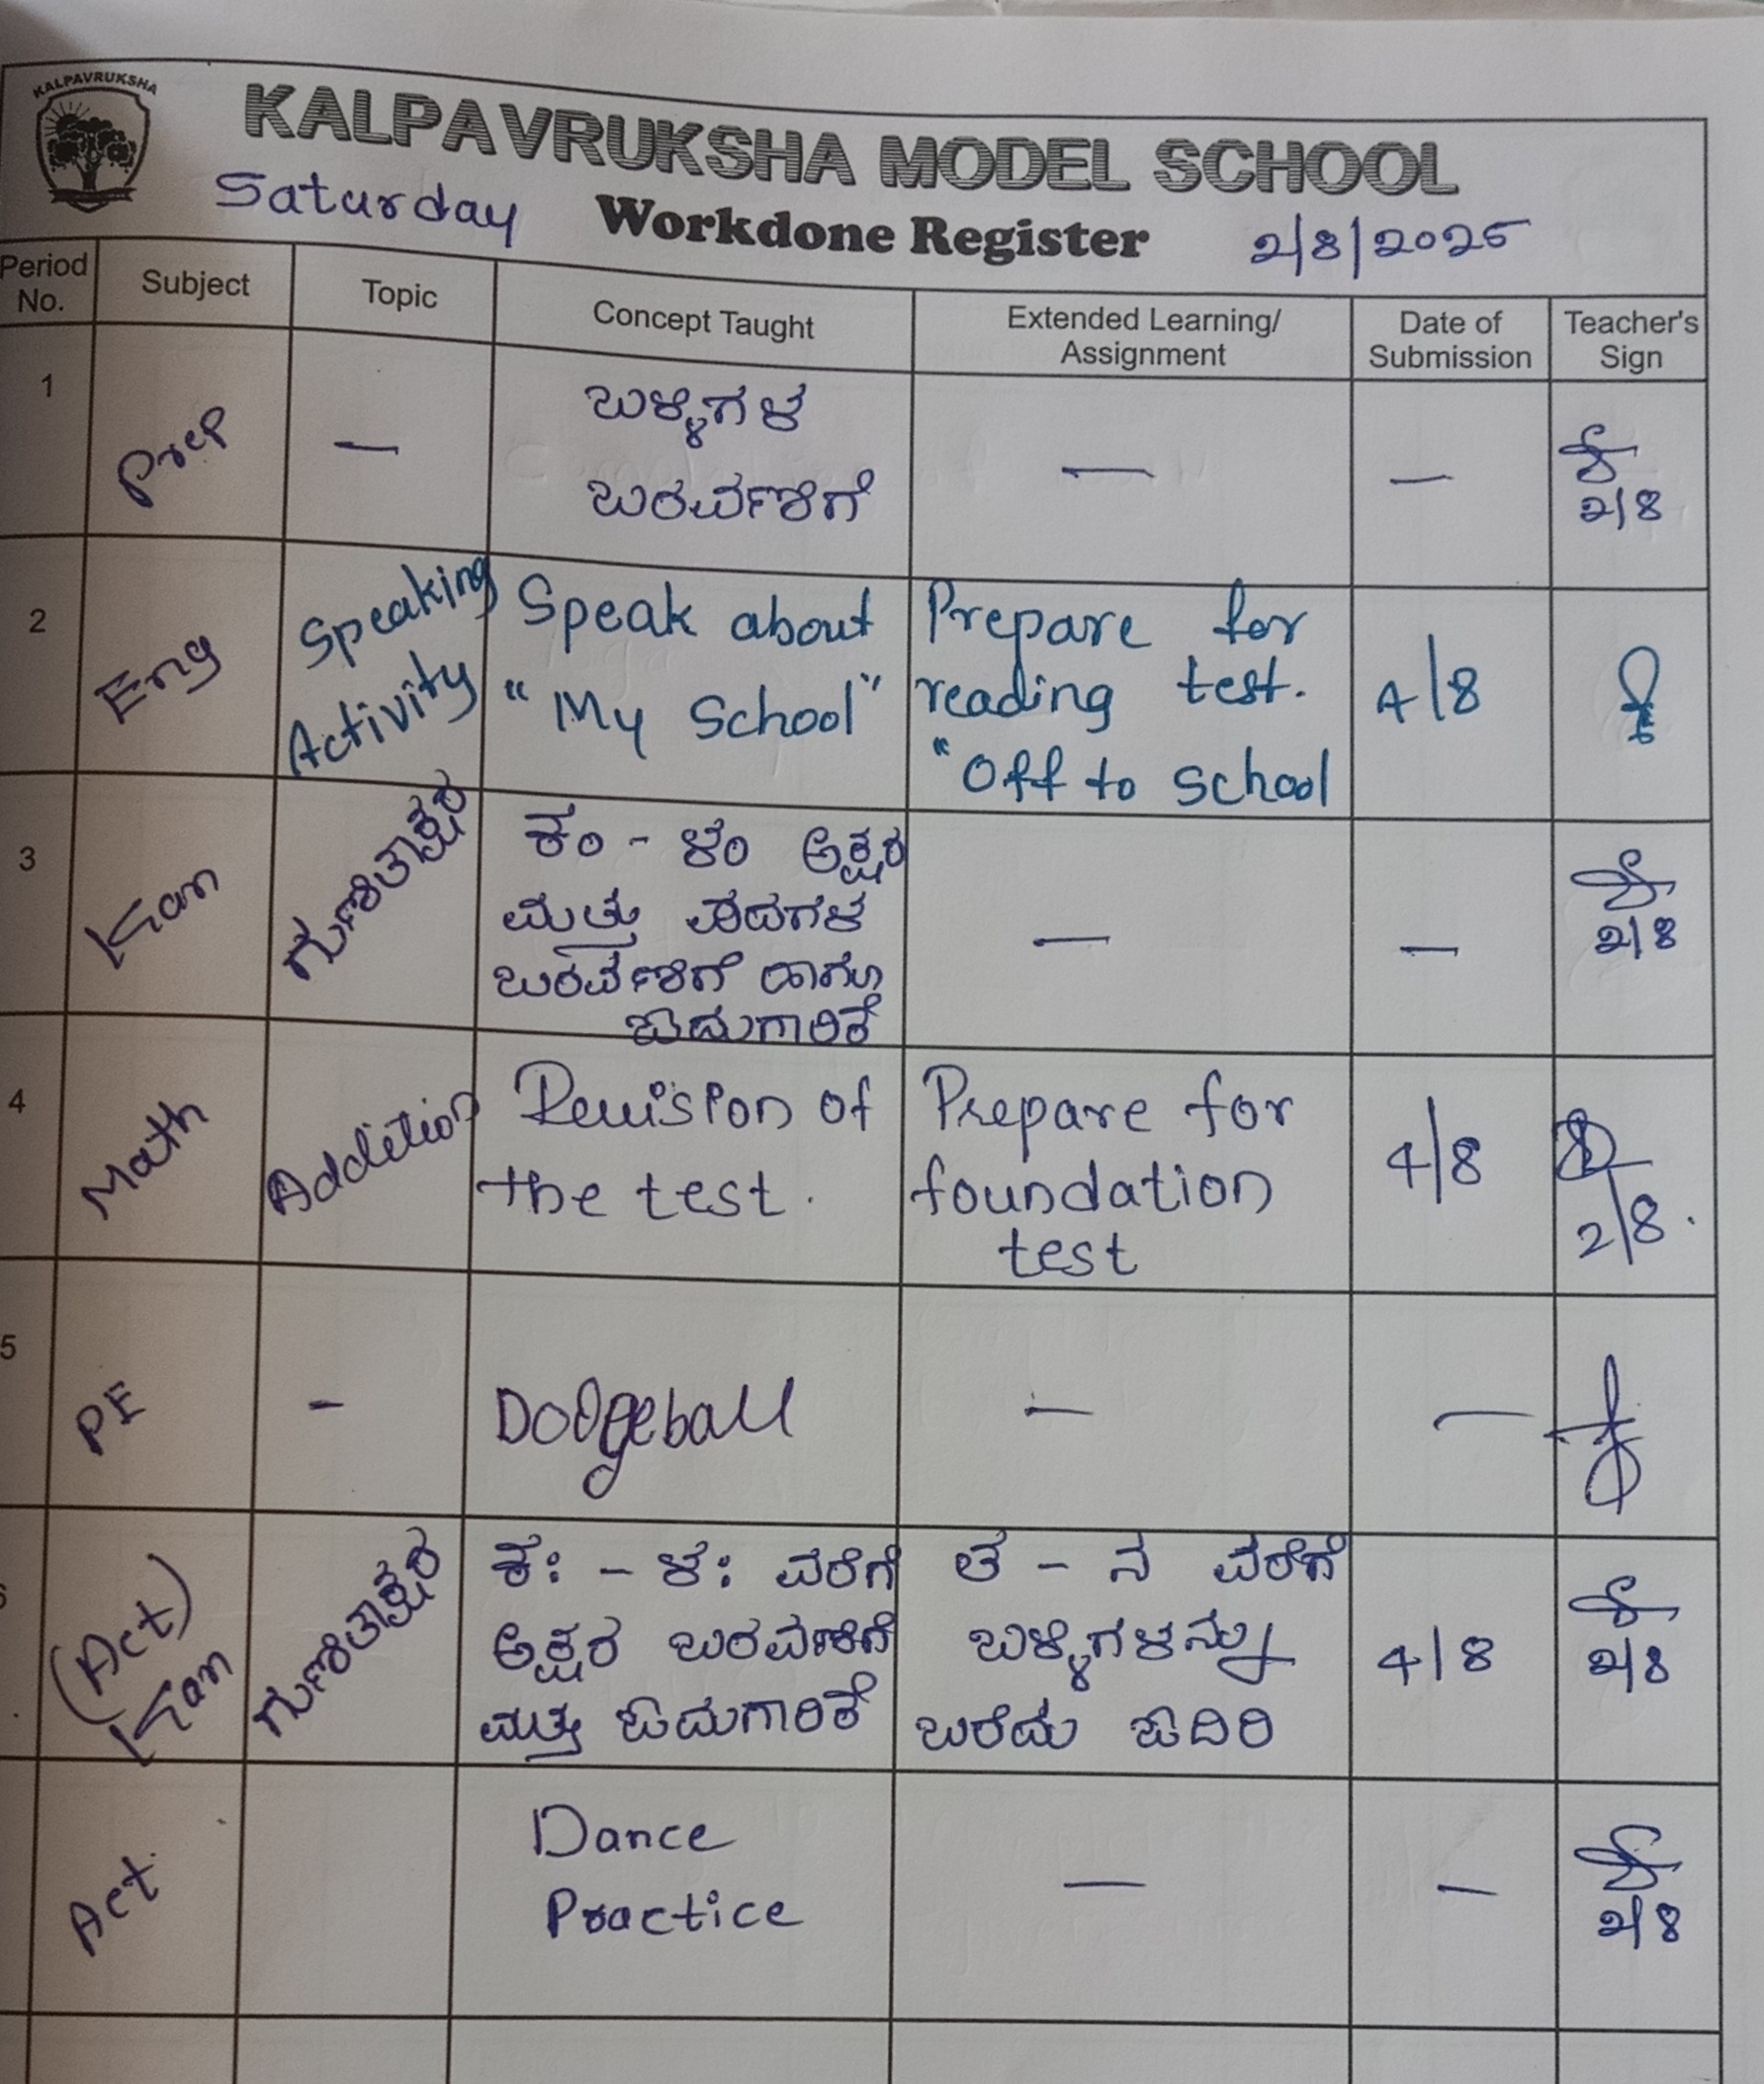 KALPAVRUKSHA
KALPAVRUKSHA MODEL SCHOOL
Saturday Workdone Register 2/8/2025
Period No. Subject Topic Concept Taught Extended Learning/ Assignment Date of Submission Teacher's Sign
1 Prep — ಬಳ್ಳಿಗಳ — —
ಬರವಣಿಗೆ
2/8
2 Eng Speaking Activity Speak about Prepare for 4/8
"My School" reading test.
"Off to School
3 Kan ಗುಣಿತಾಕ್ಷರ ಕಂ - ಳಂ ಅಕ್ಷರ — —
ಮತ್ತು ಪದಗಳ
ಬರವಣಿಗೆ ಹಾಗೂ
ಓದುಗಾರಿಕೆ
2/8
4 Math Addition Revision of Prepare for 4/8
the test. foundation
test
2/8.
5 PE - Dodgeball — —
(Act) Kan ಗುಣಿತಾಕ್ಷರ ಕಃ - ಳಃ ವರೆಗೆ ತ - ನ ವರೆಗೆ 4/8
ಅಕ್ಷರ ಬರವಣಿಗೆ ಬಳ್ಳಿಗಳನ್ನು
ಮತ್ತು ಓದುಗಾರಿಕೆ ಬರೆದು ಓದಿರಿ
2/8
Act Dance — —
Practice
2/8